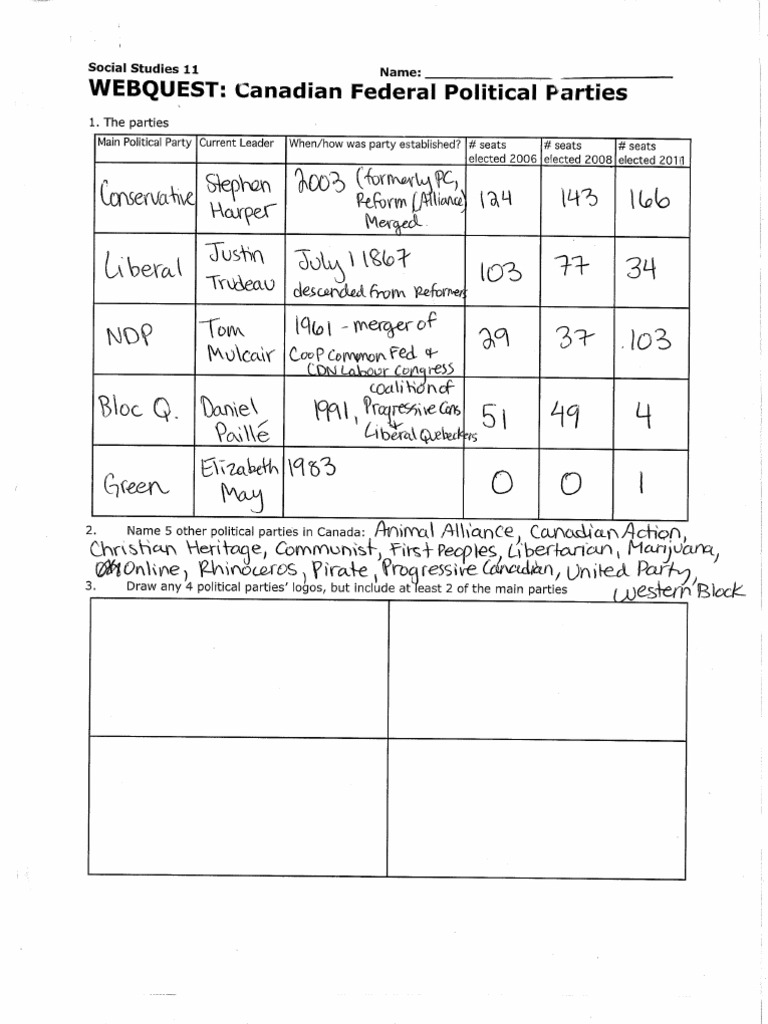 Social Studies 11 Name:
WEBQUEST: Canadian Federal Political Parties
1. The parties
Main Political Party Current Leader When/how was party established? # seats elected 2006 # seats elected 2008 # seats elected 2011
Conservative Stephen Harper 2003 (formerly PC, Reform (Alliance) Merged. 124 143 166
Liberal Justin Trudeau July 1 1867 descended from Reformers 103 77 34
NDP Tom Mulcair 1961 - merger of Coop Common Fed & CDN Labour Congress 29 37 103
Bloc Q. Daniel Paillé 1991, coalition of Progressive Cons + Liberal Quebeckers 51 49 4
Green Elizabeth May 1983 0 0 1
2. Name 5 other political parties in Canada: Animal Alliance, Canadian Action,
Christian Heritage, Communist, First Peoples, Libertarian, Marijuana,
Online, Rhinoceros, Pirate, Progressive Canadian, United Party,
Western Block
3. Draw any 4 political parties' logos, but include at least 2 of the main parties